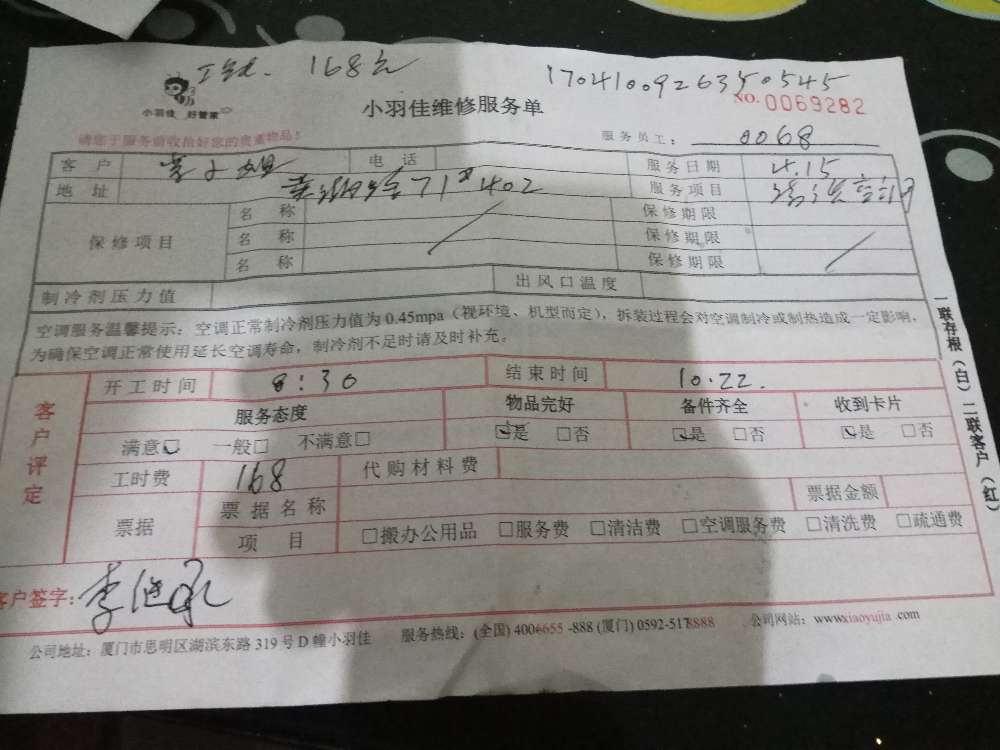 168元 1704100926350545
小羽佳 好管家 小羽佳维修服务单 NO. 0069282
请您于服务前收拾好您的贵重物品! 服务员工: 0068
客户 李小姐 电话 服务日期 4.15
地址 71# 402 服务项目 清洗空调
保修项目 名称 保修期限
名称 保修期限
名称 保修期限
制冷剂压力值 出风口温度
空调服务温馨提示: 空调正常制冷剂压力值为 0.45mpa (视环境、机型而定), 拆装过程会对空调制冷或制热造成一定影响,
为确保空调正常使用延长空调寿命, 制冷剂不足时请及时补充。
一联存根(白)二联客户(红)
客户评定
开工时间 8:30 结束时间 10.22.
服务态度 物品完好 备件齐全 收到卡片
满意☑ 一般□ 不满意□ ☑是 □否 ☑是 □否 ☑是 □否
工时费 168 代购材料费
票据 票据名称 票据金额
项目 □搬办公用品 □服务费 □清洁费 □空调服务费 □清洗费 □疏通费
客户签字:
公司地址: 厦门市思明区湖滨东路 319 号 D 幢小羽佳 服务热线: (全国) 4006655 -888 (厦门) 0592-5178888 公司网站: www.xiaoyujia .com